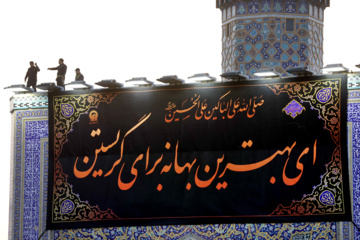 صلی الله علی الباکین علی الحسین
ای بهترین بهانه برای گریستن